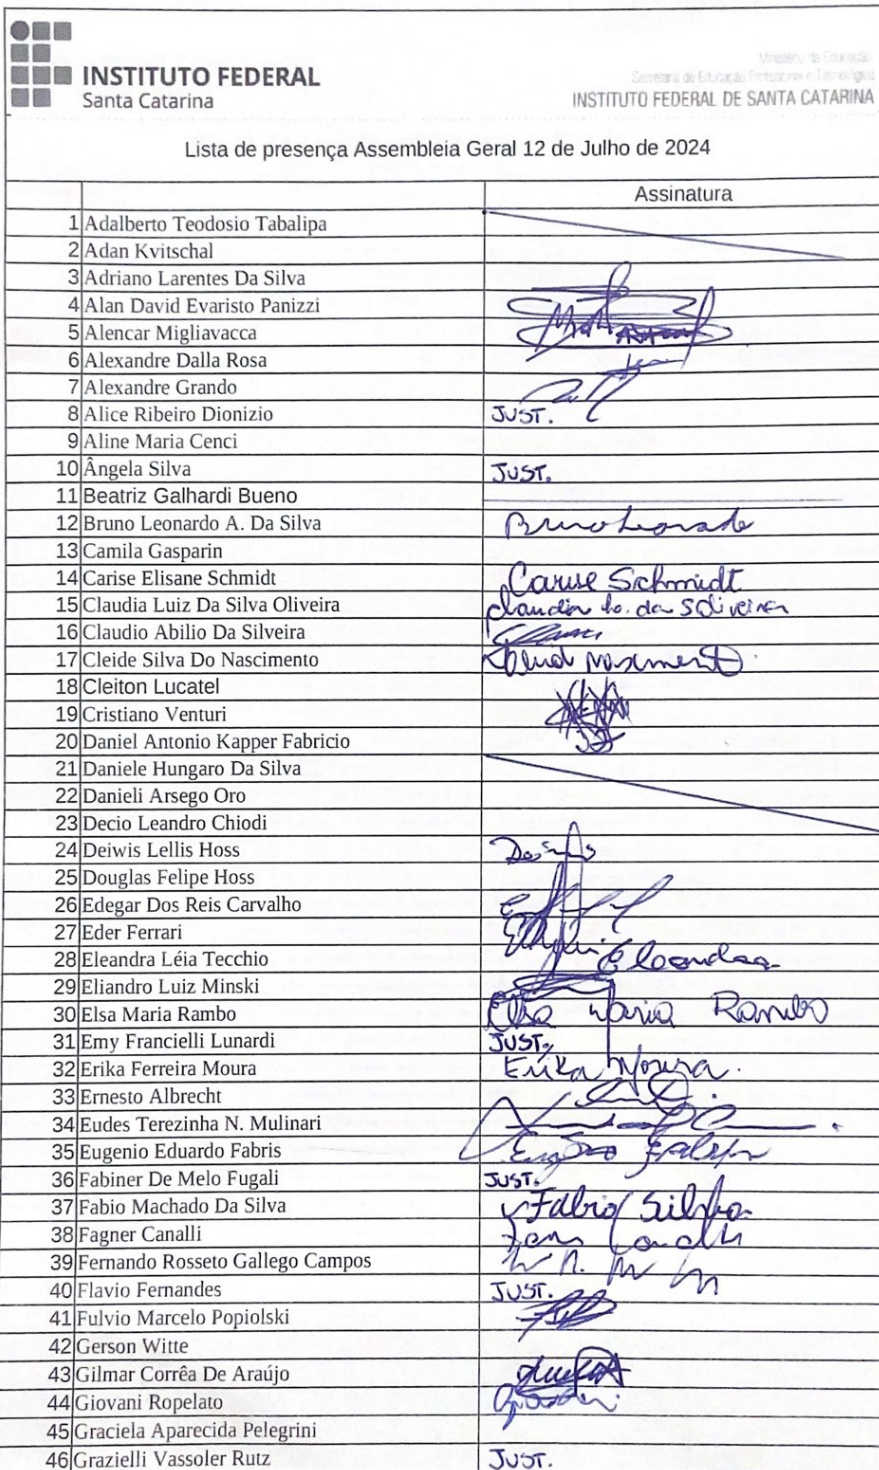 INSTITUTO FEDERAL
Santa Catarina
Ministério da Educação
Secretaria de Educação Profissional e Tecnológica
INSTITUTO FEDERAL DE SANTA CATARINA
Lista de presença Assembleia Geral 12 de Julho de 2024
Assinatura
1 Adalberto Teodosio Tabalipa
2 Adan Kvitschal
3 Adriano Larentes Da Silva
4 Alan David Evaristo Panizzi
5 Alencar Migliavacca
6 Alexandre Dalla Rosa
7 Alexandre Grando
8 Alice Ribeiro Dionizio JUST.
9 Aline Maria Cenci
10 Ângela Silva JUST.
11 Beatriz Galhardi Bueno
12 Bruno Leonardo A. Da Silva Bruno Leonardo
13 Camila Gasparin
14 Carise Elisane Schmidt Carise Schmidt
15 Claudia Luiz Da Silva Oliveira Claudia
16 Claudio Abilio Da Silveira
17 Cleide Silva Do Nascimento Nascimento
18 Cleiton Lucatel
19 Cristiano Venturi
20 Daniel Antonio Kapper Fabricio
21 Daniele Hungaro Da Silva
22 Danieli Arsego Oro
23 Decio Leandro Chiodi
24 Deiwis Lellis Hoss
25 Douglas Felipe Hoss
26 Edegar Dos Reis Carvalho
27 Eder Ferrari
28 Eleandra Léia Tecchio Eleandra
29 Eliandro Luiz Minski
30 Elsa Maria Rambo Elsa Maria Rambo
31 Emy Francielli Lunardi JUST.
32 Erika Ferreira Moura Erika Moura.
33 Ernesto Albrecht
34 Eudes Terezinha N. Mulinari
35 Eugenio Eduardo Fabris
36 Fabiner De Melo Fugali JUST.
37 Fabio Machado Da Silva Fabio Silva
38 Fagner Canalli
39 Fernando Rosseto Gallego Campos
40 Flavio Fernandes JUST.
41 Fulvio Marcelo Popiolski
42 Gerson Witte
43 Gilmar Corrêa De Araújo
44 Giovani Ropelato
45 Graciela Aparecida Pelegrini
46 Grazielli Vassoler Rutz JUST.